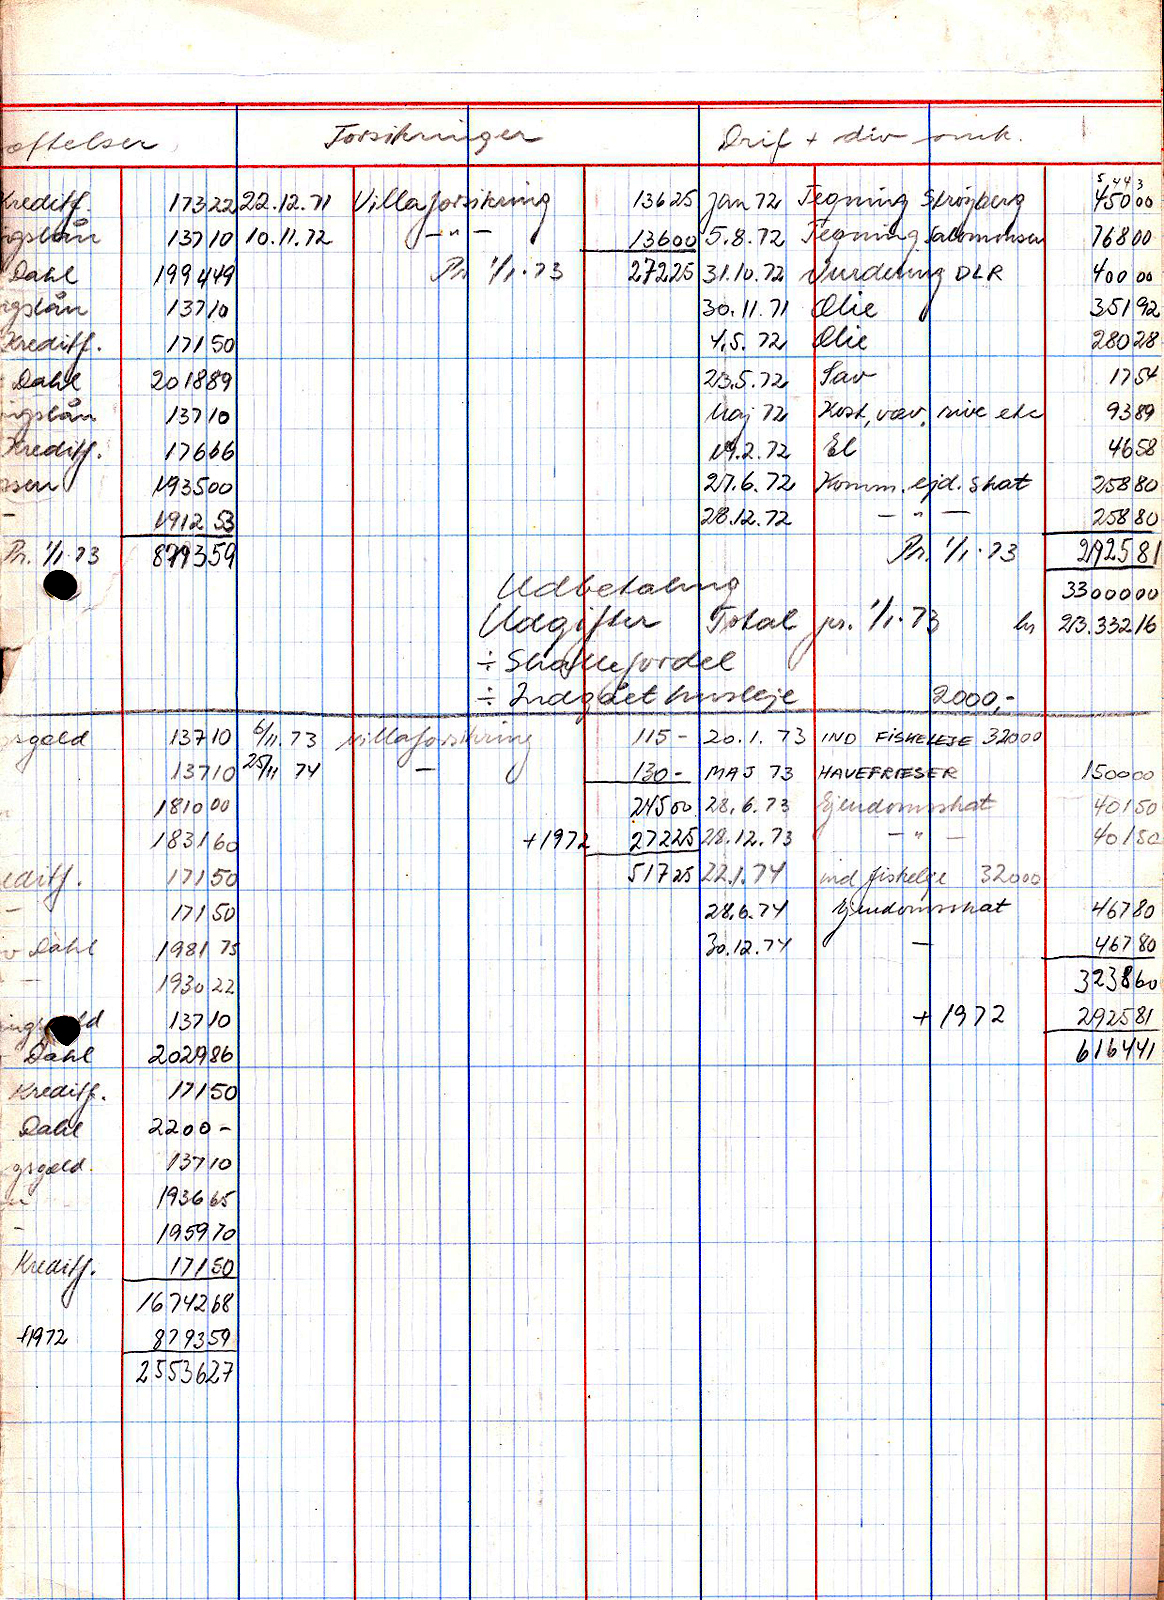 Forsikringer Drif + div omk.
Krediff. 17322 22.12.71 Villaforsikring 13625 Jan 72 Tegning Strøjberg 45000
5 4 4 3
13710 10.11.72 — " — 13600 5.8.72 Tegning Salomonsen 76800
Dahl 199449 Pr. 1/1-73 27225 31.10.72 Vurdering DLR 40000
13710 30.11.71 Olie 35192
Krediff. 17150 4.5.72 Olie 28028
Dahl 201889 23.5.72 Sav 1754
13710 Maj 72 Kost, rive etc 9389
Krediff. 17666 19.2.72 El 4658
193500 27.6.72 Komm. ejd. skat 25880
— 191253 28.12.72 — " — 25880
Pr. 1/1-73 879359 Pr. 1/1-73 292581
Udbetaling 3300000
Udgifter Total pr. 1/1-73 kr 33216
÷ Skattefordel
÷ Indgået husleje 2000,-
13710 6/11.73 Villaforsikring 115- 20.1.73 IND FISKELEJE 32000
13710 25/11 74 — 130- MAJ 73 HAVEFRÆSER 150000
181000 24500 28.6.73 Ejendomsskat 40150
183160 +1972 27225 28.12.73 — " — 40150
17150 51725 22.1.74 ind fiskeleje 32000
— 17150 28.6.74 Ejendomsskat 46780
Dahl 198175 30.12.74 — 46780
— 193022 323860
13710 +1972 292581
Dahl 202986 616441
Krediff. 17150
Dahl 2200-
13710
193665
- 195970
Krediff. 17150
1674268
+1972 879359
2553627